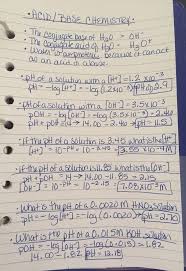 • ACID/BASE CHEMISTRY:
• The conjugate base of H₂O = OH⁻
• The conjugate acid of H₂O = H₃O⁺
• Water is amphoteric because it can act
as an acid or a base.
• pH of a solution with a [H⁺] = 1.2 x 10⁻³
pH = -log[H⁺] = -log(1.2x10⁻³) pH = 2.9
• pH of a solution with a [OH⁻] = 3.5x10⁻³
pOH = -log[OH⁻] = -log(3.5x10⁻³) = 2.46
pH + pOH = 14 → 14.00 - 2.46 pH = 11.5
• If the pH of a solution is 3.45 what is the [H⁺]
[H⁺] = 10^-pH = 10^-3.45 = 3.55 x 10⁻⁴ M
• If the pOH of a solution is 1.85 what is the [OH⁻]
[OH⁻] = 10^-pOH = 10^-2.15 = 7.08x10⁻³ M
• What is the pH of a 0.0020 M HNO₃ solution
pH = -log[H⁺] = -log(0.0020) pH = 2.70
• What is the pH of a 0.015 M KOH solution
pOH = -log[OH⁻] = -log(0.015) = 1.82
14.00 - 1.82 pH = 12.18